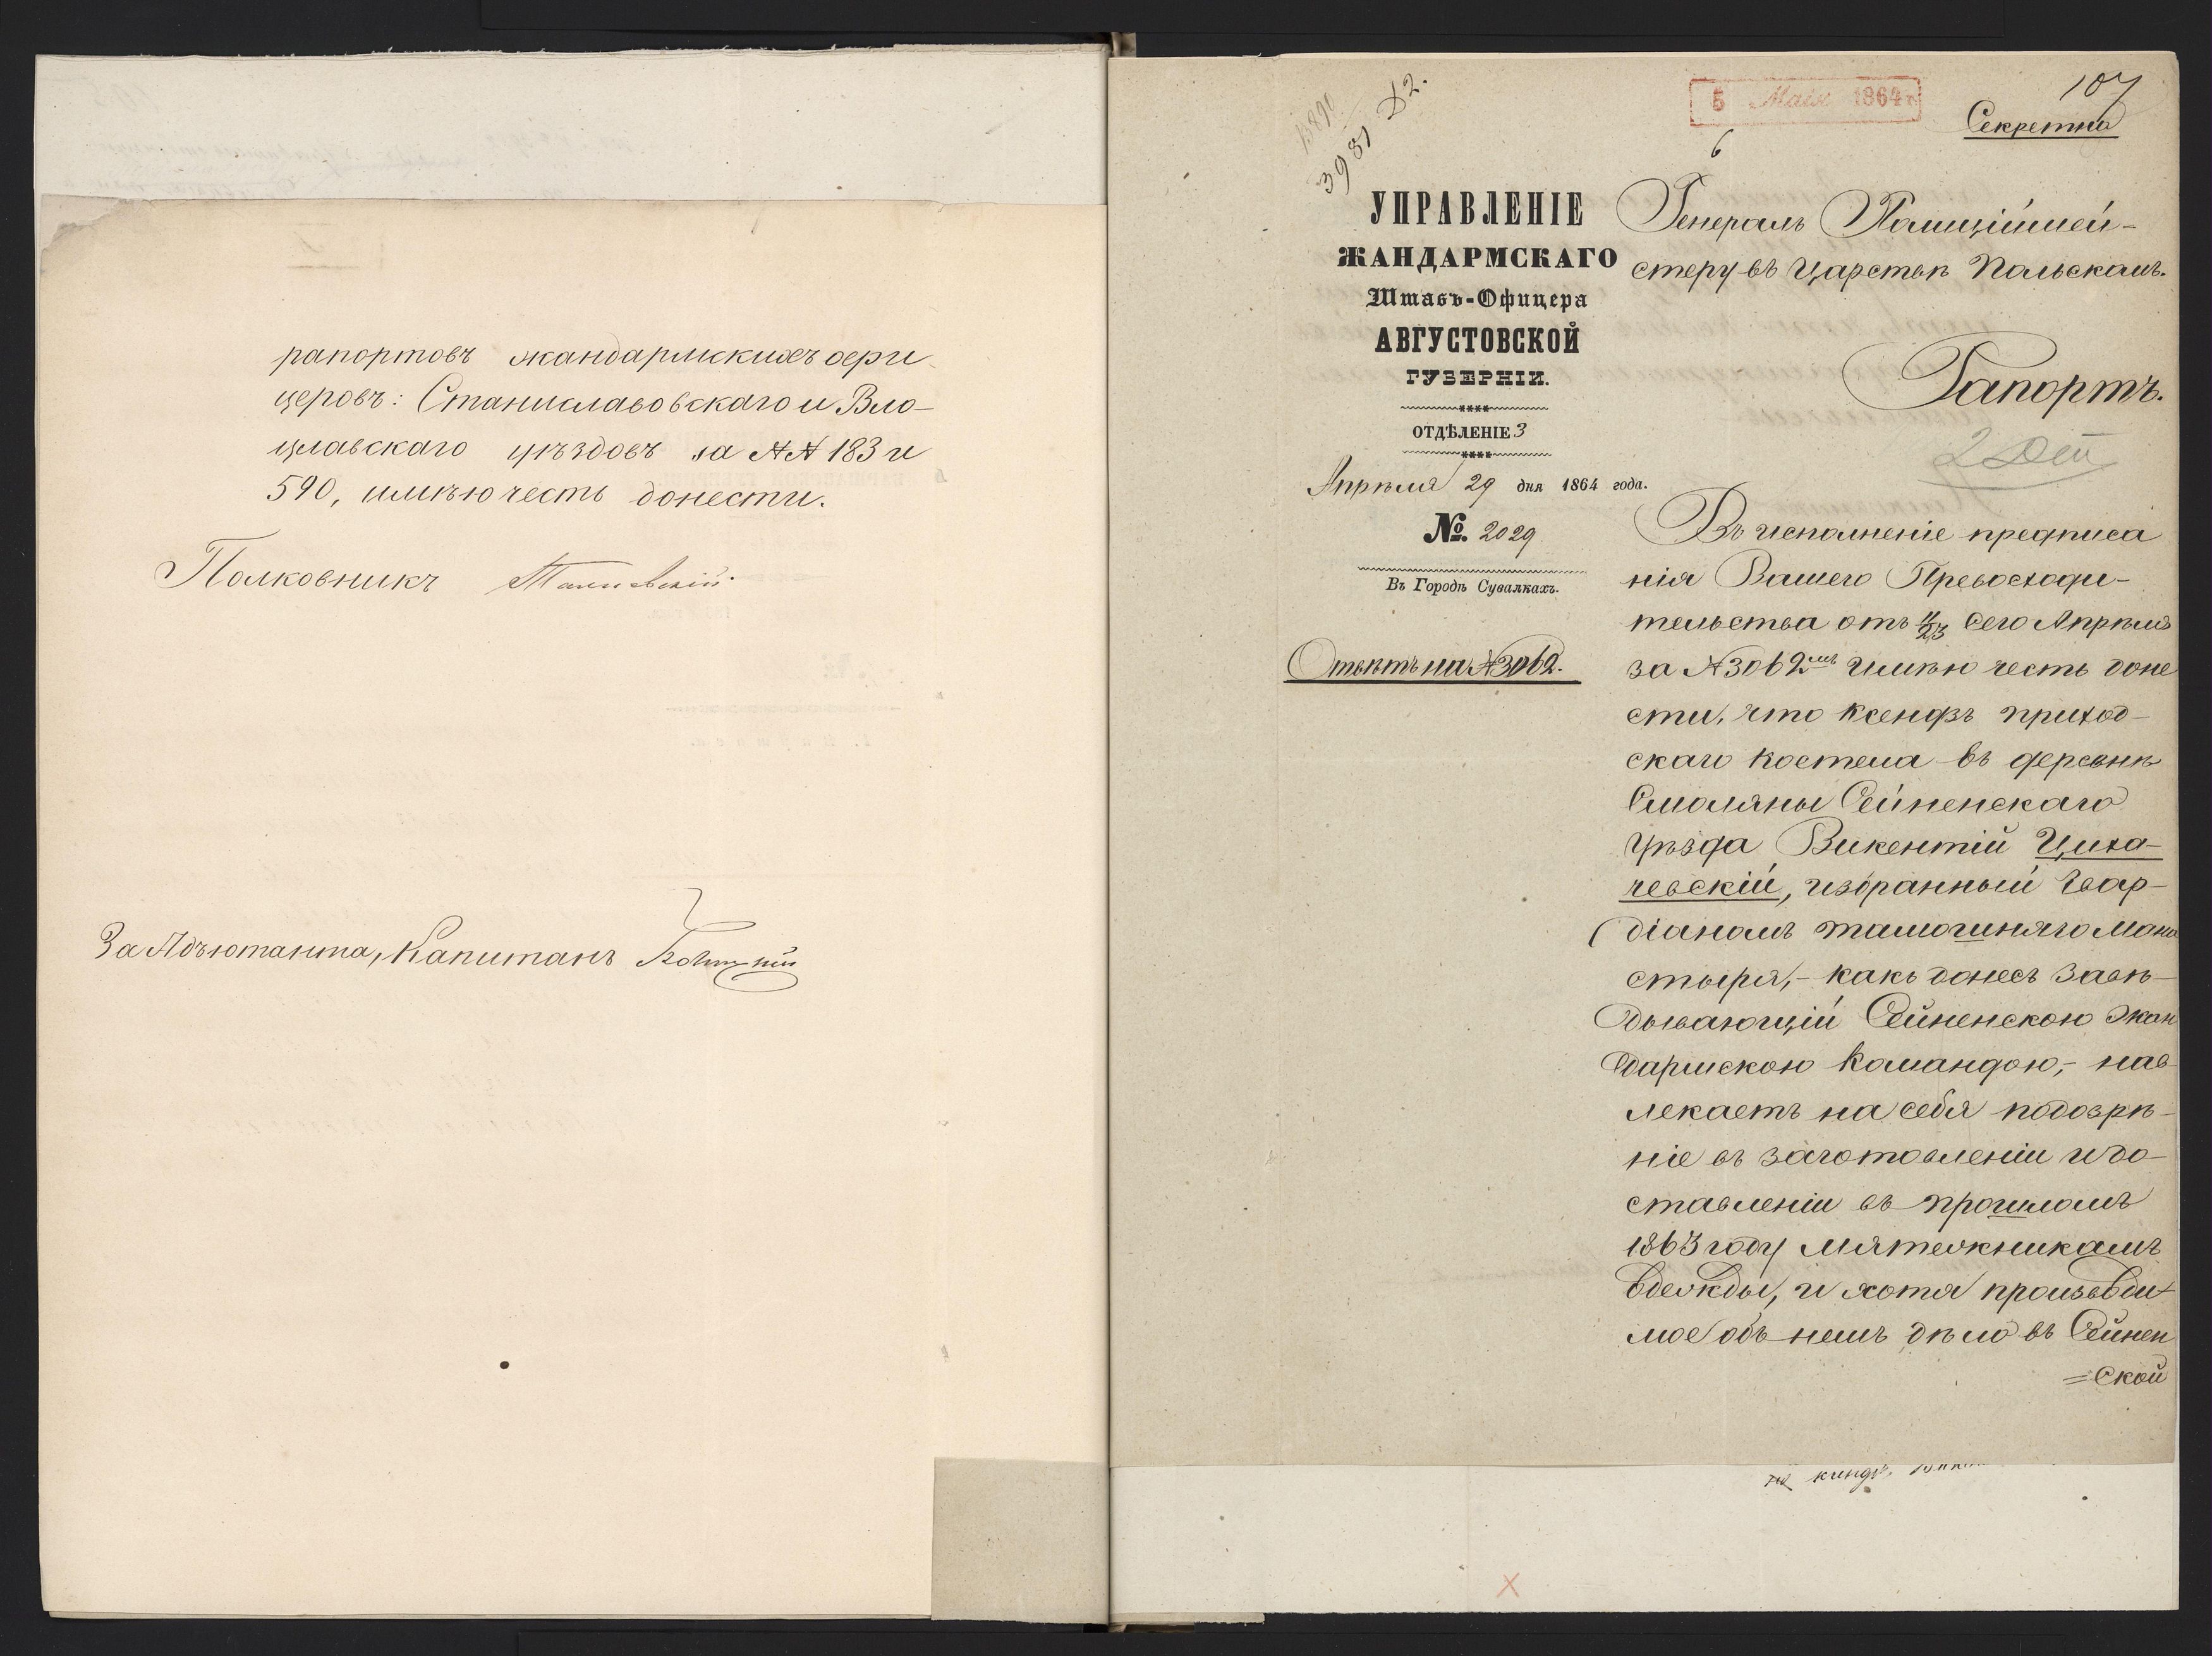 рапортовъ жандармскихъ офи
церовъ: Станиславовскаго и Вло-
цлавскаго уѣздовъ за №№ 183 и
590, имѣю честь донести.
Полковникъ
За Адъютанта, Капитанъ
107
5 Мая 1864 г.
Секретно
6
3981 Д2.
УПРАВЛЕНІЕ
ЖАНДАРМСКАГО
Штабъ-Офицера
АВГУСТОВСКОЙ
ГУБЕРНІИ.
ОТДѢЛЕНІЕ 3
Апрѣля 29 дня 1864 года.
№. 2029
Въ Городѣ Сувалкахъ.
Отвѣтъ на № 3062.
Генералъ Полиціймей-
стеру въ Царствѣ Польскомъ.
Рапортъ.
Въ исполненіе предписа
нія Вашего Превосходи-
тельства отъ 11/23 сего Апрѣля
за № 3062мъ имѣю честь доне
сти, что ксендзъ приход-
скаго костела въ деревнѣ
Смоляны Сейненскаго
Уѣзда Викентій Циха-
чевскій, избранный Гвар-
діаномъ тамошняго Мона
стыря,- какъ донесъ Завѣ-
дывающій Сейненскою Жан
дармскою Командою,- нав-
лекаетъ на себя подозрѣ-
ніе въ заготовленіи и до-
ставленіи въ прошломъ
1863 году мятежникамъ
одежды, и хотя производи-
мое объ немъ дѣло въ Сейнен
=ской